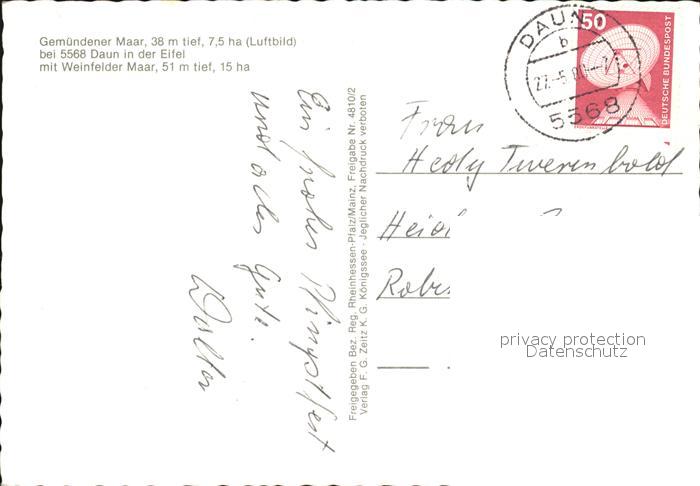 Gemündener Maar, 38 m tief, 7,5 ha (Luftbild)
bei 5568 Daun in der Eifel
mit Weinfelder Maar, 51 m tief, 15 ha
Ein frohes Pfingstfest
und alles Gute.
Walter
Freigegeben Bez. Reg. Rheinhessen-Pfalz/Mainz, Freigabe Nr. 4810/2
Verlag F. G. Zeitz K. G. Königssee - Jeglicher Nachdruck verboten
DAUN
b
5568
50
DEUTSCHE BUNDESPOST
Frau
Hedy Twerenbold
Heidi
privacy protection
Datenschutz